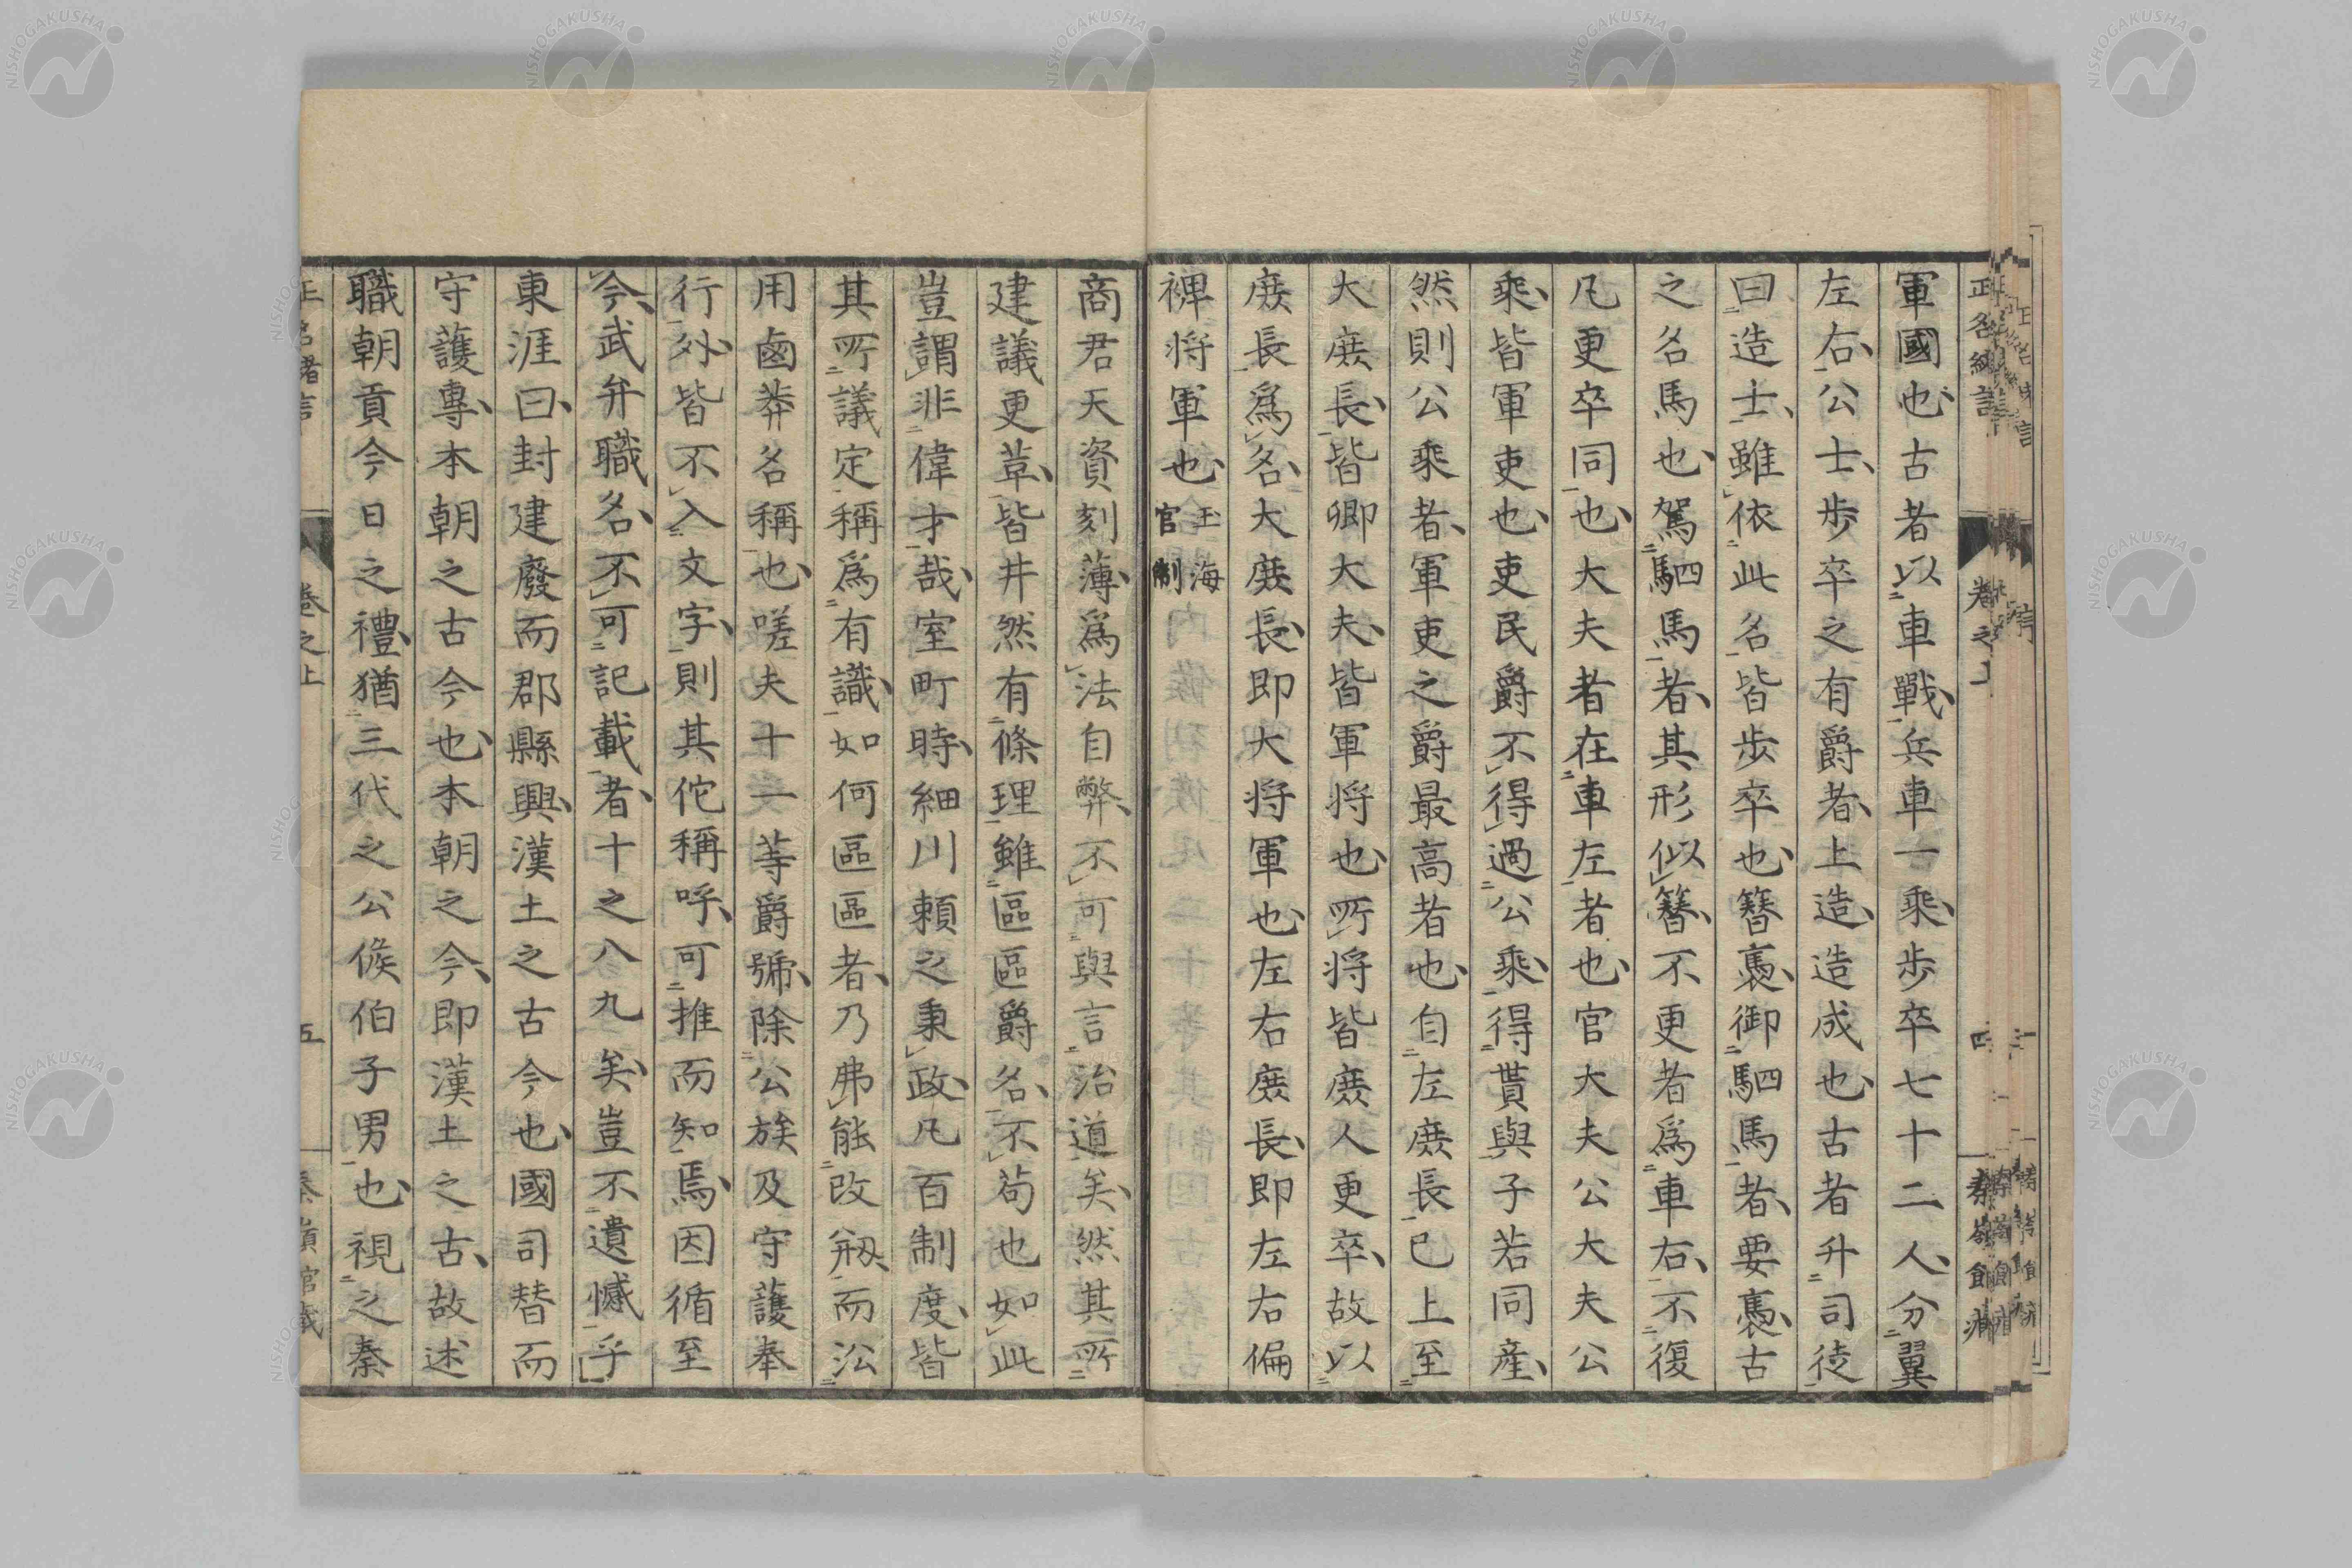 軍國也古者以車戰兵車一乘步卒七十二人分翼
左右公士步卒之有爵者上造造成也古者升司徒
曰造士雖依此名皆步卒也簪褭御駟馬者要褭古
之名馬也駕駟馬者其形似簪不更者爲車右不復
凡更卒同也大夫者在車左者也官大夫公大夫公
乘皆軍吏也吏民爵不得過公乘得貰與子若同產
然則公乘者軍吏之爵最高者也自左庶長已上至
大庶長皆卿大夫皆軍將也所將皆庶人更卒故以
庶長爲名大庶長即大將軍也左右庶長即左右偏
裨將軍也玉海官制
商君天資刻薄爲法自弊不可與言治道矣然其所
建議更革皆井然有條理雖區區爵名不苟也如此
豈謂非偉才哉室町時細川賴之秉政凡百制度皆
其所議定稱爲有識如何區區者乃弗能改剏而沿
用鹵莽名稱也嗟夫十一等爵號除公族及守護奉
行外皆不入文字則其佗稱呼可推而知焉因循至
今武弁職名不可記載者十之八九矣豈不遺憾乎
東涯曰封建廢而郡縣興漢土之古今也國司替而
守護專本朝之古今也本朝之今即漢土之古故述
職朝貢今日之禮猶三代之公侯伯子男也視之秦
正名緒言 卷之上 五
NISHOGAKUSHA